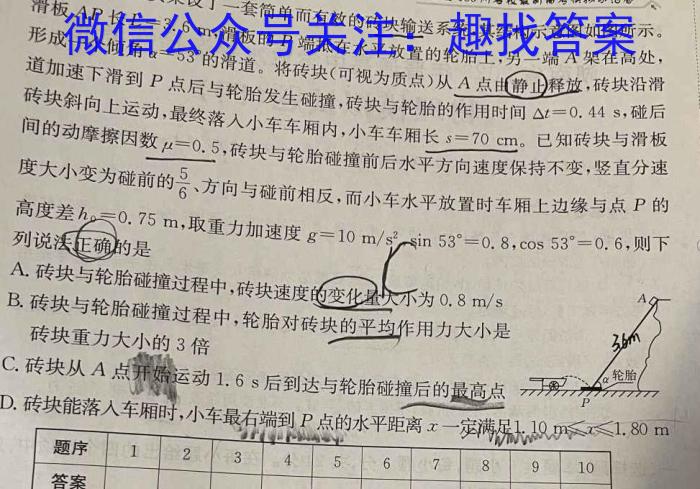 一套简单而有效的砖块输送系统
滑板 AP长 3.6 m
微信公众号关注：趣找答案
形成 53°的滑道。将砖块(可视为质点)从 A 点由静止释放,砖块沿滑
道加速下滑到 P 点后与轮胎发生碰撞,砖块与轮胎的作用时间 Δt=0.44 s,碰后
砖块斜向上运动,最终落入小车车厢内,小车车厢长 s=70 cm。已知砖块与滑板
间的动摩擦因数 μ=0.5,砖块与轮胎碰撞前后水平方向速度保持不变,竖直分速
度大小变为碰前的5/6、方向与碰前相反,而小车水平放置时车厢上边缘与点 P 的
高度差 h₀=0.75 m,取重力加速度 g=10 m/s²,sin 53°=0.8,cos 53°=0.6,则下
列说法正确的是
A. 砖块与轮胎碰撞过程中,砖块速度的变化量大小为 0.8 m/s
B. 砖块与轮胎碰撞过程中,轮胎对砖块的平均作用力大小是
砖块重力大小的 3 倍
C. 砖块从 A 点开始运动 1.6 s 后到达与轮胎碰撞后的最高点
D. 砖块能落入车厢时,小车最右端到 P 点的水平距离 x 一定满足1.10 m≤x≤1.80 m
A
3.6m
α
轮胎
P
题序 1 2 3 4 5 6 7 8 9 10
答案